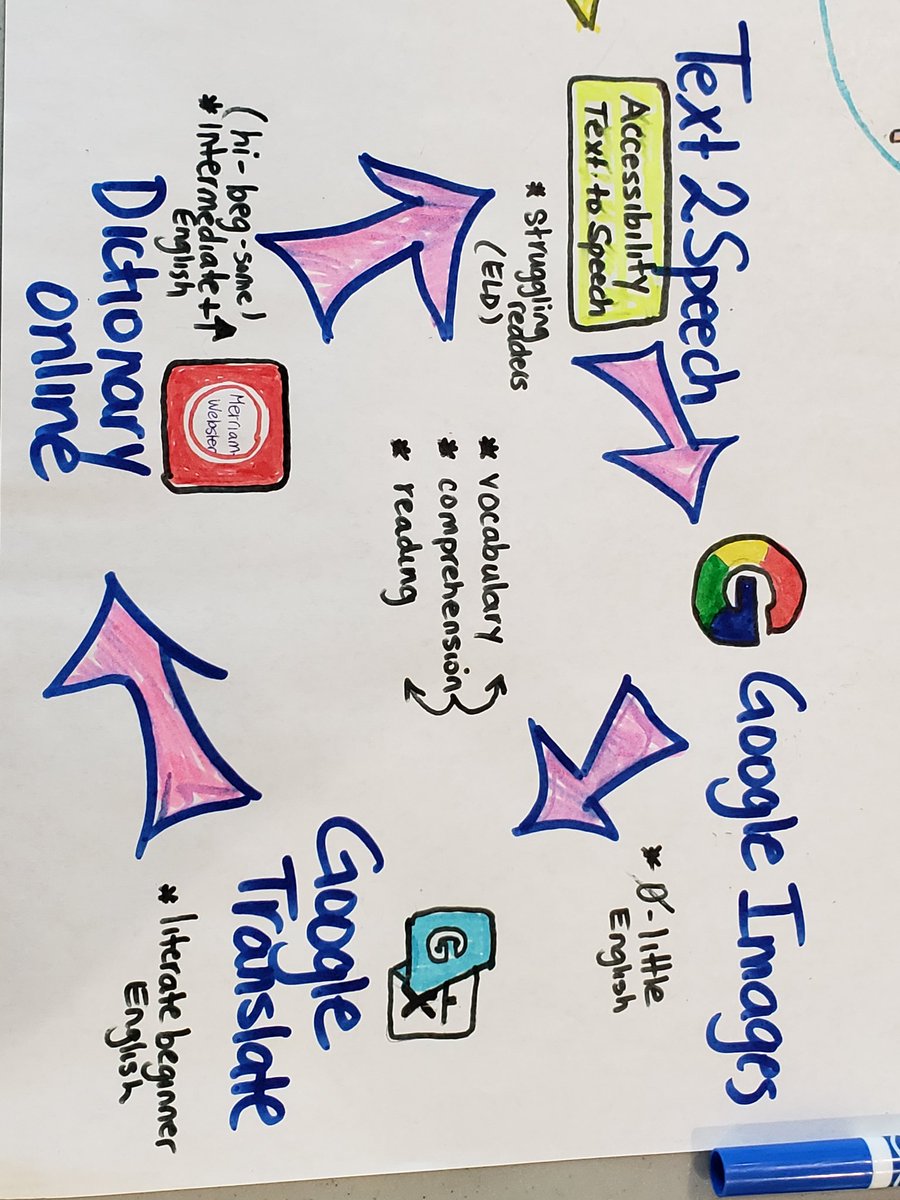 Text 2 Speech
Accessibility
Text to Speech
* struggling
readers
(ELD)
G
Google Images
* Ø-little
English
* vocabulary
* comprehension
* reading
G
Google
Translate
* literate beginner
English
(hi-beg-some)
* Intermediate +
English
Merriam
Webster
Dictionary
online